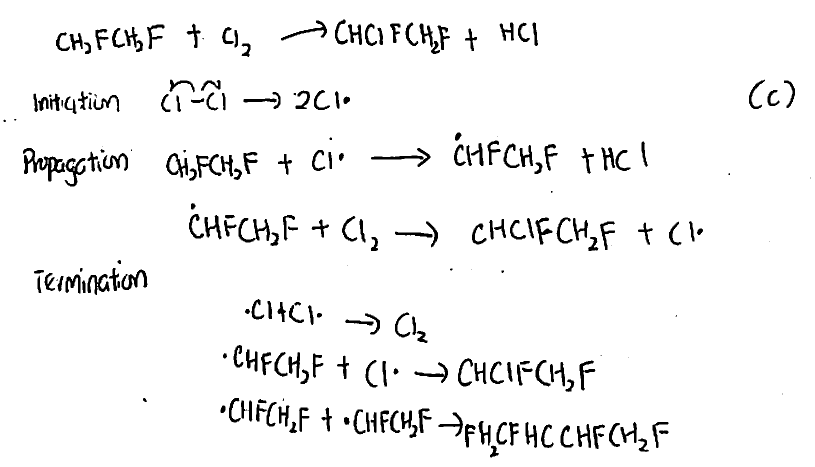 CH₂FCH₂F + Cl₂ → CHClFCH₂F + HCl
Initiation Cl-Cl → 2Cl• (c)
Propagation CH₂FCH₂F + Cl• → •CHFCH₂F + HCl
•CHFCH₂F + Cl₂ → CHClFCH₂F + Cl•
Termination
•Cl+Cl• → Cl₂
•CHFCH₂F + Cl• → CHClFCH₂F
•CHFCH₂F + •CHFCH₂F → FH₂CFHCCHFCH₂F